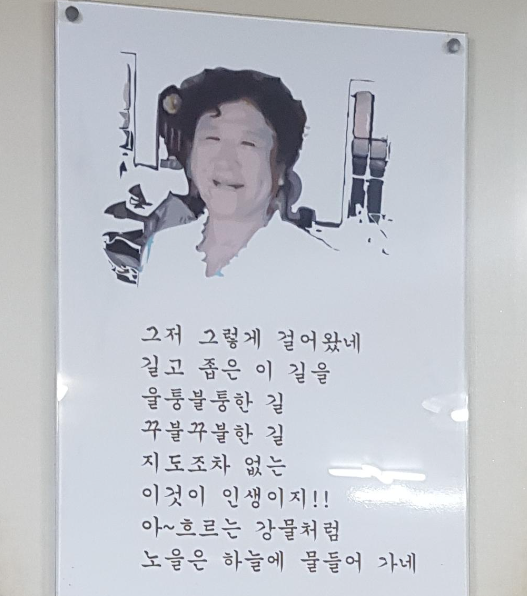 그저 그렇게 걸어왔네
길고 좁은 이 길을
울퉁불퉁한 길
꾸불꾸불한 길
지도조차 없는
이것이 인생이지!!
아~흐르는 강물처럼
노을은 하늘에 물들어 가네